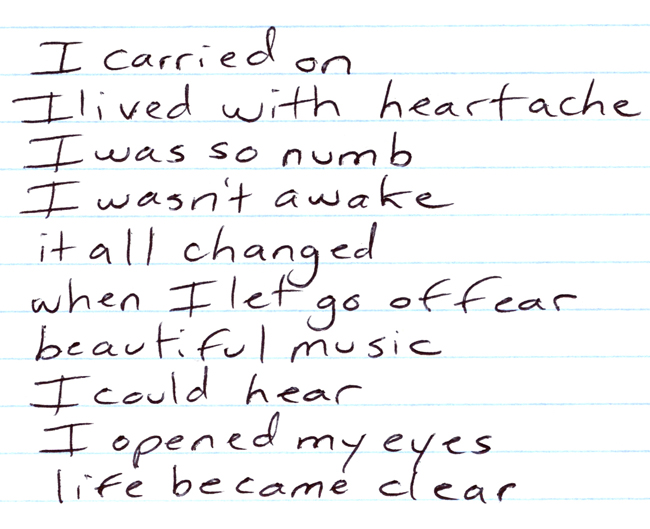 I carried on
I lived with heartache
I was so numb
I wasn't awake
it all changed
when I let go of fear
beautiful music
I could hear
I opened my eyes
life became clear